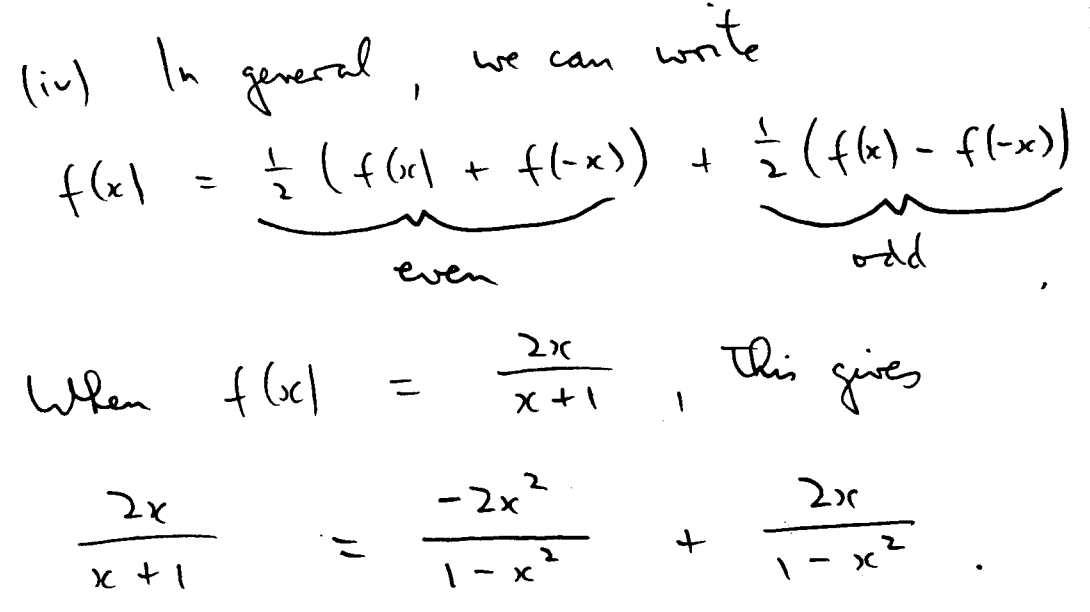 (iv) In general, we can write
f(x) = 1/2 (f(x) + f(-x)) + 1/2 (f(x) - f(-x))
even odd ,
When f(x) = 2x/(x+1), this gives
2x/(x+1) = -2x²/(1-x²) + 2x/(1-x²) .